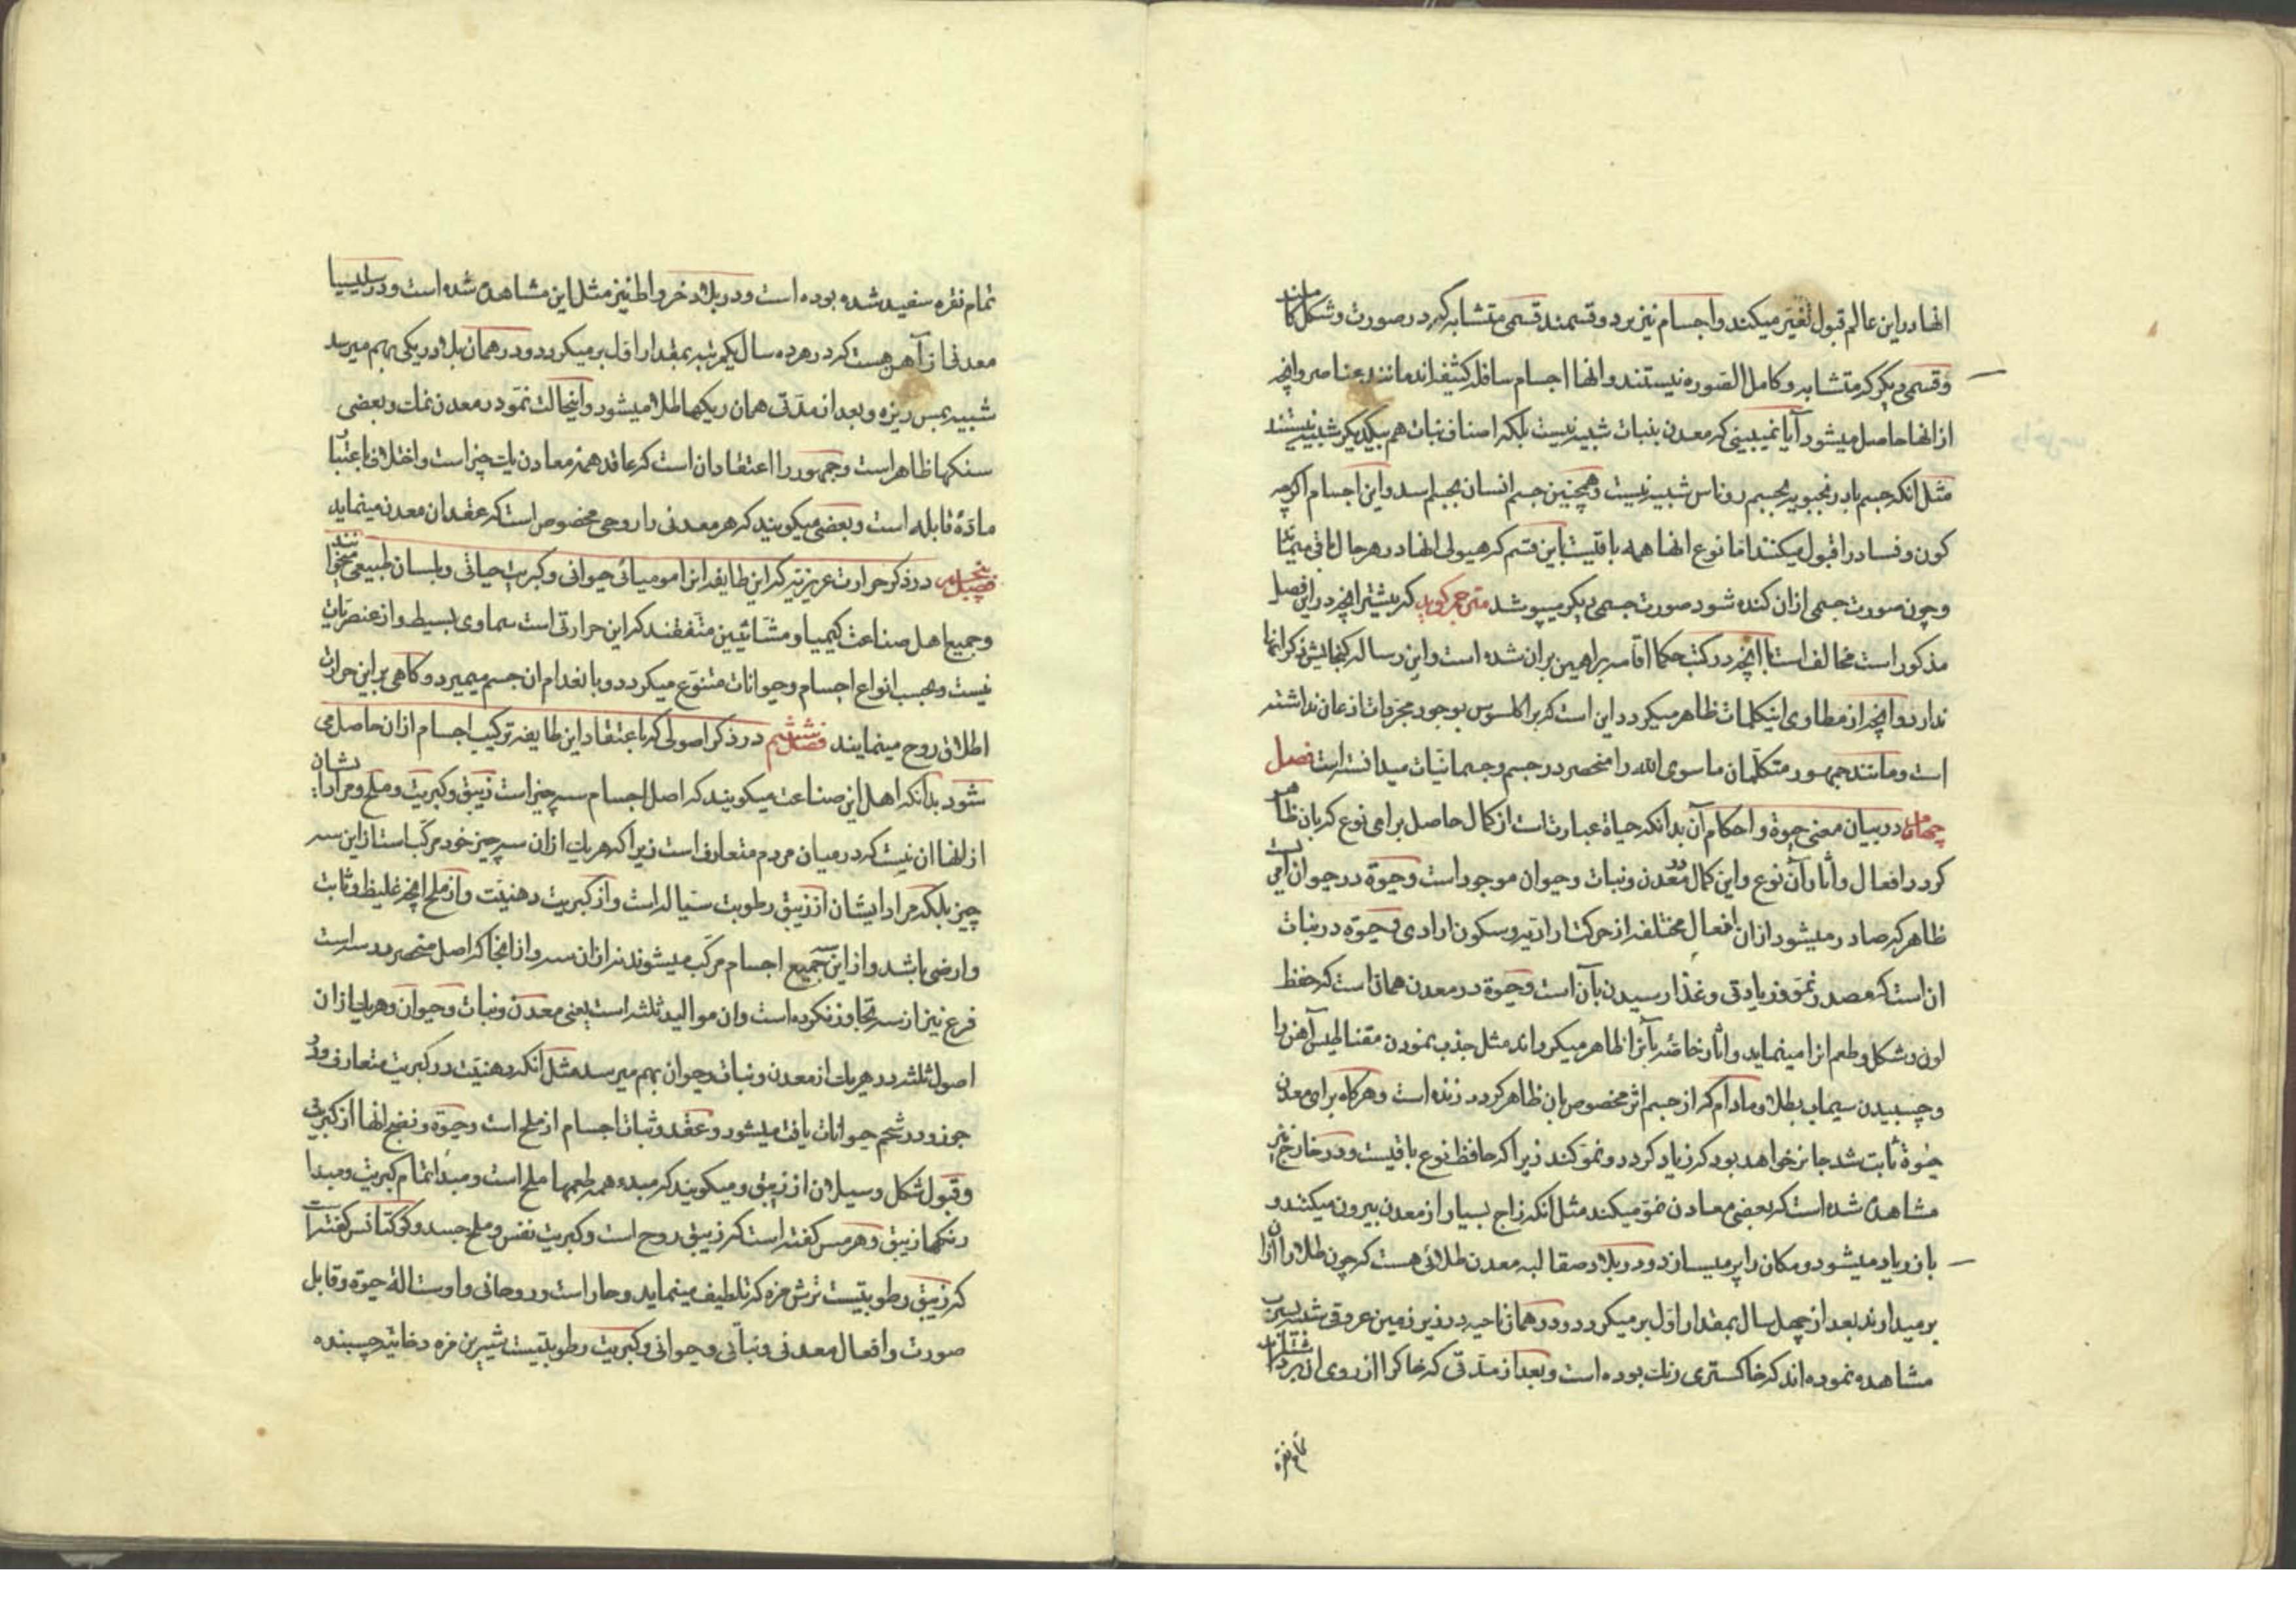 انها در این عالم قبول تغیّر میکنند و اجسام نیز بر دو قسمند قسمی متشابه که در صورت و شکل کامل‌اند
و قسمی دیگر که متشابه و کامل الصوره نیستند و انها اجسام سافله کثیفه‌اند مانند عناصر و انچه
از انها حاصل میشود آیا نمیبینی که معدن بنبات شبیه نیست بلکه اصناف نبات هم بیکدیگر شبیه نیستند
مثل انکه جسم بادرنجبویه بجسم روناس شبیه نیست و همچنین جسم انسان بجسم اسد و این اجسام اکرچه
کون و فساد را قبول میکنند اما نوع انها همه باقیست باین قسم که هیولی انها در هر حال باقی میماند
و چون صورت جسمی از ان کنده شود صورت جسمی دیگر میپوشد مترجم کوید که بیشتر انچه در این فصل
مذکور است مخالف است با انچه در کتب حکما اقامه براهین بر ان شده است و این رساله کنجایش ذکر انها
ندارد و انچه از مطاوی اینکلمات ظاهر میکردد این است که براکلسوس بوجود مجردات اذعان نداشته
است و مانند جمهور متکلمان ما سوی الله را منحصر در جسم و جسمانیات میدانسته است فصل
چهارم در بیان معنی حیوة و احکام آن بدانکه حیاة عبارت است از کمال حاصل برای نوع که بان ظاهر
کردد افعال و آثار آن نوع و این کمال در معدن و نبات و حیوان موجود است و حیوة در حیوان امریست
ظاهر که صادر میشود از ان افعال مختلفه از حرکت ارادیه و سکون ارادی و حیوة در نبات
ان است که مصدر نمو و زیادتی و غذا رسیدن بآن است و حیوة در معدن همان است که حفظ
لون و شکل و طعم انرا مینماید و آثار خاصه بآنرا ظاهر میکرداند مثل جذب نمودن مقناطیس آهن را
و چسبیدن سیماب بطلا و مادام که از جسم اثر مخصوص بان ظاهر کردد زنده است و هرکاه برای معدن
حیوة ثابت شد جایز خواهد بود که زیاد کردد و نمو کند زیرا که حافظ نوع باقیست و در خارج نیز
مشاهده شده است که بعضی معادن نمو میکند مثل انکه زاج بسیار از معدن بیرون میکشند و
باز زیاد میشود و مکان را پر میسازد و در بلاد صقالبه معدن طلائی هست که چون طلا را از ان
برمیدارند بعد از چهل سال بمقدار اول بر میکردد و در همان ناحیه در زیر زمین عروقی شبیه بسرب
مشاهده نموده‌اند که خاکستری رنک بوده است و بعد از مدتی که خاک را از روی ان برداشته‌اند
تمام نقره
تمام نقره سفید شده بوده است و در بلاد خرواط نیز مثل این مشاهده شده است و در سلیسیا
معدنی از آهن هست که در هر ده سال یکمرتبه بمقدار اول بر میکردد و در همان بلاد ریکی بهم میرسد
شبیه بمس ریزه و بعد از مدتی همان ریکها طلا میشود و اینحالت نمو در معدن نمک و بعضی
سنکها ظاهر است و جمهور را اعتقاد ان است که عاقد همه معادن یک چیز است و اختلاف باعتبار
مادهٔ قابله است و بعضی میکویند که هر معدنی را روحی مخصوص است که عقد ان معدن مینماید
فصل پنجم در ذکر حرارت عزیزیه که این طایفه انرا مومیائی حیوانی و کبریت حیاتی و بلسان طبیعی میخوانند
و جمیع اهل صناعت کیمیا و مشائیین متفقند که این حرارتی است سماوی بسیط و از عنصریات
نیست و بحسب انواع اجسام و حیوانات متنوع میکردد و بانعدام ان جسم میمیرد و کاهی بر این حرارت
اطلاق روح مینمایند فصل ششم در ذکر اصولی که باعتقاد این طایفه ترکیب اجسام از ان حاصل می
شود بدانکه اهل این صناعت میکویند که اصل اجسام سه چیز است زیبق و کبریت و ملح و مراد ایشان
از انها ان نیست که در میان مردم متعارف است زیرا که هر یک از ان سه چیز خود مرکب است از این سه
چیز بلکه مراد ایشان از زیبق رطوبت سیاله است و از کبریت دهنیّت و از ملح انچه غلیظ و ثابت
و ارضی باشد و از این سه جمیع اجسام مرکب میشوند نه از ان سه و از انجا که اصل منحصر در سه است
فرع نیز از سه تجاوز نکرده است و ان موالید ثلثه است یعنی معدن و نبات و حیوان و هر یک از ان
اصول ثلثه در هر یک از معدن و نبات و حیوان بهم میرسد مثل انکه دهنیّت در کبریت متعارف و در
جوز و در شحم حیوانات یافت میشود و عقد و ثبات اجسام از ملح است و حیوة و نضج انها از کبریت
و قبول شکل و سیلان از زیبق و میکویند که مبدء همه طعمها ملح است و مبدا تمام کبریت و مبدا
رنکها زیبق و هرمس کفته است که زیبق روح است و کبریت نفس و ملح جسد و کوکتانس کفته است
که زیبق رطوبتیست ترش مزه که تلطیف مینماید و حار است و روحانی و اوست آلة حیوة و قابل
صورت و افعال معدنی و نباتی و حیوانی و کبریت رطوبتیست شیرین مزه دخانیه چسبنده